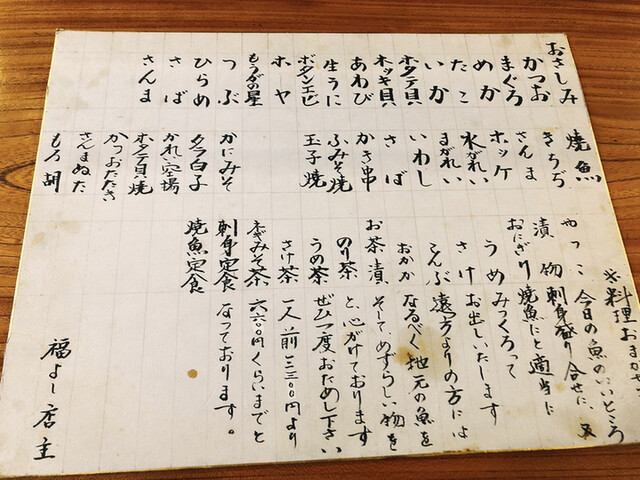 おさしみ
かつお
まぐろ
めか
たこ
いか
ホタテ貝
ホッキ貝
あわび
生うに
ボタンエビ
ホヤ
もうかの星
つぶ
ひらめ
さば
さんま
焼魚
きちぢ
さんま
ホッケ
水がれい
まがれい
いわし
さば
かき串
ふみそ焼
玉子焼
かにみそ
タラ白子
かれい空揚
ホタテ貝焼
かつおたたき
さんまぬた
もろ胡
やっこ
漬物
おにぎり
うめ
さけ
こんぶ
おかか
お茶漬
のり茶
うめ茶
さけ茶
ねぎみそ茶
刺身定食
焼魚定食
お料理おまかせ
今日の魚のいいところ
刺身盛り合せに、又
焼魚にと適当に
みつくろって
お出しいたします
遠方よりの方には
なるべく地元の魚を
そしてめずらしい物を
と、心がけております
ぜひ一度おためし下さい
一人前三三〇〇円より
六六〇〇円くらいまでと
なっております。
福よし店主